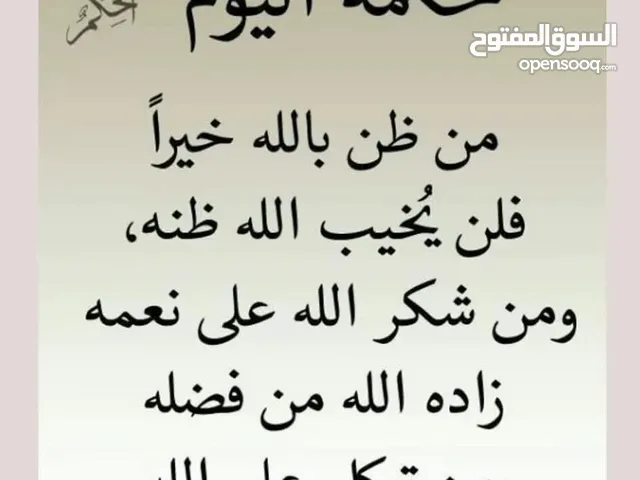 حكمة اليوم
الحكم
السوق المفتوح
opensooq.com
من ظن بالله خيراً
فلن يُخيب الله ظنه،
ومن شكر الله على نعمه
زاده الله من فضله
ومن توكل على الله